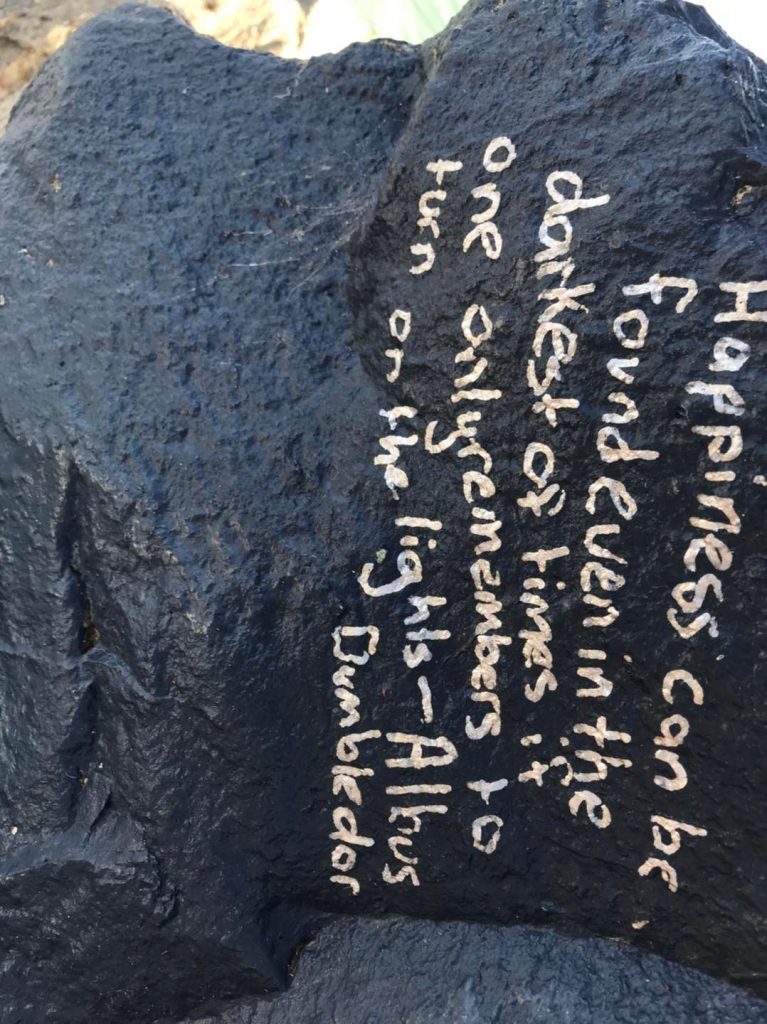 Happiness can be
found even in the
darkest of times if
one only remembers to
turn on the lights - Albus
Dumbledor